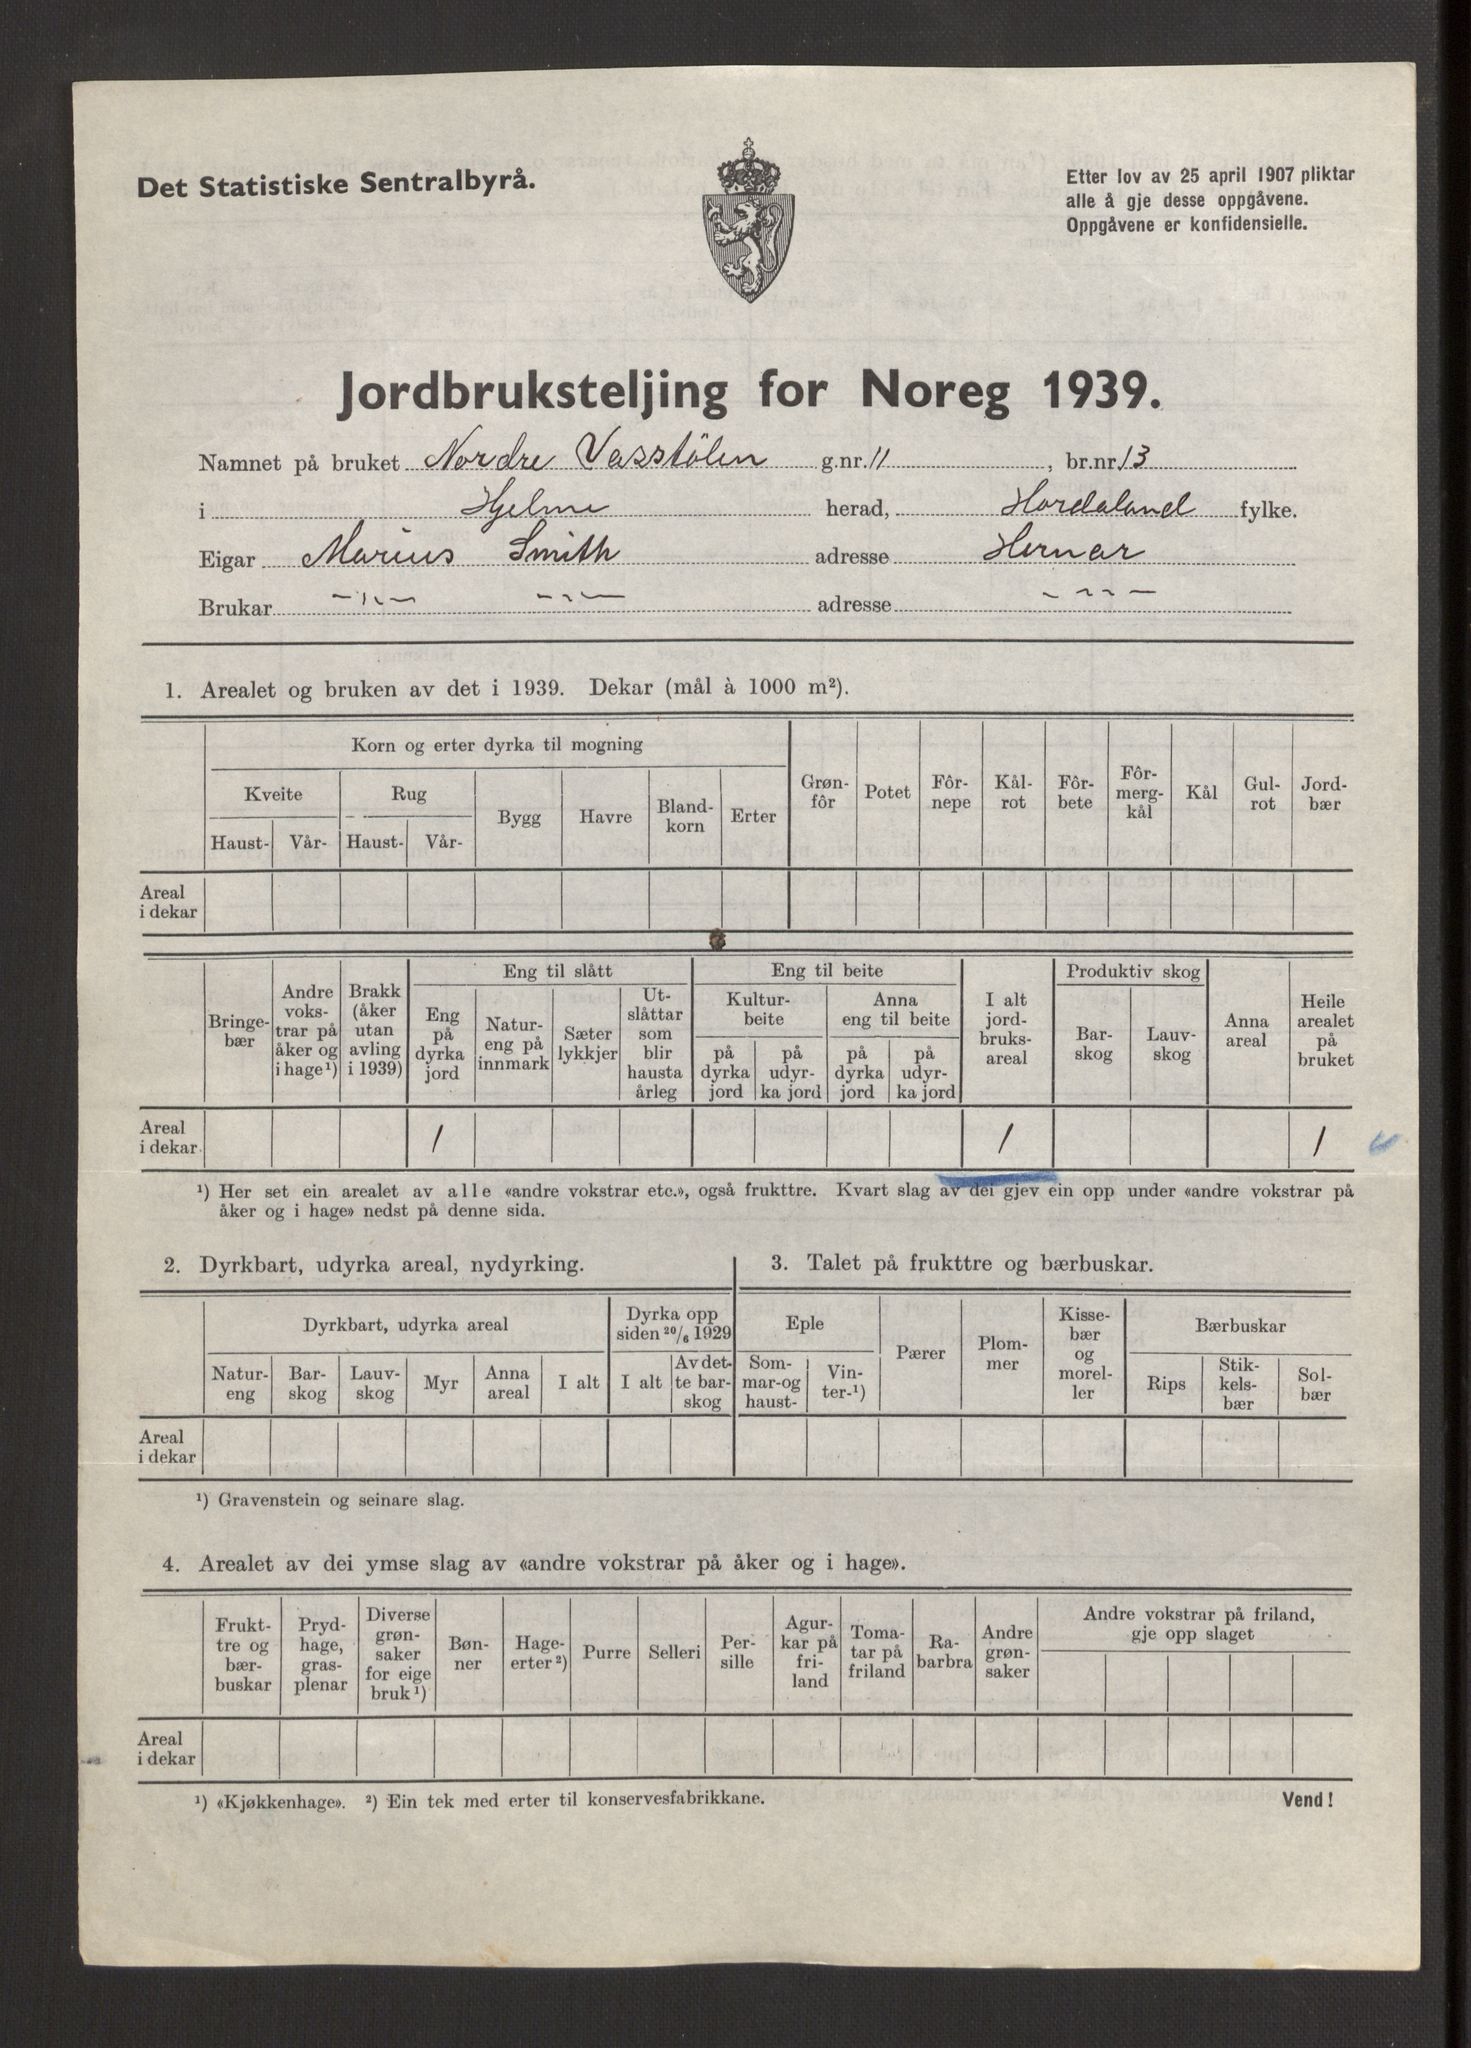 Det Statistiske Sentralbyrå.
Etter lov av 25 april 1907 pliktar
alle å gje desse oppgåvene.
Oppgåvene er konfidensielle.
Jordbruksteljing for Noreg 1939.
Namnet på bruket Nordre Vasstölen g.nr. 11, br.nr 13
i Hjelme herad, Hordaland fylke.
Eigar Marius Smith adresse Hernar
Brukar -„- -„- adresse -„-
1. Arealet og bruken av det i 1939. Dekar (mål à 1000 m²).
Korn og erter dyrka til mogning
Kveite
Haust- Vår-
Rug
Haust- Vår-
Bygg
Havre
Bland-
korn
Erter
Grøn-
fôr
Potet
Fôr-
nepe
Kål-
rot
Fôr-
bete
Fôr-
merg-
kål
Kål
Gul-
rot
Jord-
bær
Areal
i dekar
Bringe-
bær
Andre
voks-
trar på
åker og
i hage¹)
Brakk
(åker
utan
avling
i 1939)
Eng til slått
Eng
på
dyrka
jord
Natur-
eng på
innmark
Sæter
lykkjer
Ut-
slåttar
som
blir
hausta
årleg
Eng til beite
Kultur-
beite
på
dyrka
jord
på
udyr-
ka jord
Anna
eng til beite
på
dyrka
jord
på
udyr-
ka jord
I alt
jord-
bruks-
areal
Produktiv skog
Bar-
skog
Lauv-
skog
Anna
areal
Heile
arealet
på
bruket
Areal
i dekar
1 1 1
¹) Her set ein arealet av alle «andre vokstrar etc.», også frukttre. Kvart slag av dei gjev ein opp under «andre vokstrar på
åker og i hage» nedst på denne sida.
2. Dyrkbart, udyrka areal, nydyrking.
Dyrkbart, udyrka areal
Natur-
eng
Bar-
skog
Lauv-
skog
Myr
Anna
areal
I alt
Dyrka opp
siden ²⁰/₆ 1929
I alt
Av det-
te bar-
skog
Areal
i dekar
¹) Gravenstein og seinare slag.
3. Talet på frukttre og bærbuskar.
Eple
Som-
mar-og
haust-
Vin-
ter-¹)
Pærer
Plom-
mer
Kisse-
bær
og
morel-
ler
Bærbuskar
Rips
Stik-
kels-
bær
Sol-
bær
4. Arealet av dei ymse slag av «andre vokstrar på åker og i hage».
Frukt-
tre og
bær-
buskar
Pryd-
hage,
gras-
plenar
Diverse
grøn-
saker
for eige
bruk¹)
Bøn-
ner
Hage-
erter²)
Purre
Selleri
Per-
sille
Agur-
kar på
fri-
land
Toma-
tar på
friland
Ra-
barbra
Andre
grøn-
saker
Andre vokstrar på friland,
gje opp slaget
Areal
i dekar
¹) «Kjøkkenhage». ²) Ein tek med erter til konservesfabrikkane.
Vend!